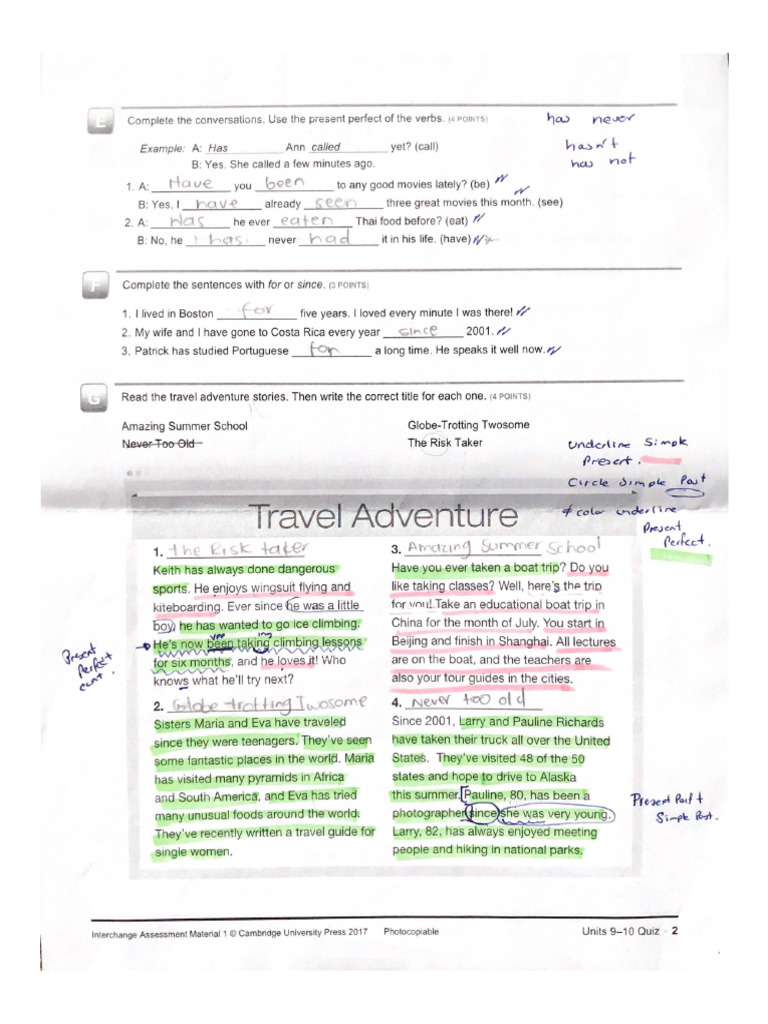 E Complete the conversations. Use the present perfect of the verbs. (4 POINTS)
has never
hasn't
has not
Example: A: Has Ann called yet? (call)
B: Yes. She called a few minutes ago.
1. A: Have you been to any good movies lately? (be)
B: Yes. I have already seen three great movies this month. (see)
2. A: Has he ever eaten Thai food before? (eat)
B: No, he has never had it in his life. (have)
F Complete the sentences with for or since. (3 POINTS)
1. I lived in Boston for five years. I loved every minute I was there!
2. My wife and I have gone to Costa Rica every year since 2001.
3. Patrick has studied Portuguese for a long time. He speaks it well now.
G Read the travel adventure stories. Then write the correct title for each one. (4 POINTS)
Amazing Summer School Globe-Trotting Twosome
Never Too Old The Risk Taker
underline Simple
Present.
Circle Simple Past
≠ color underline
Present
Perfect.
Travel Adventure
1. The Risk taker
Keith has always done dangerous
sports. He enjoys wingsuit flying and
kiteboarding. Ever since he was a little
boy, he has wanted to go ice climbing.
He's now been taking climbing lessons
for six months, and he loves it! Who
knows what he'll try next?
Present
Perfect
cont.
2. Globe trotting Twosome
Sisters Maria and Eva have traveled
since they were teenagers. They've seen
some fantastic places in the world. Maria
has visited many pyramids in Africa
and South America, and Eva has tried
many unusual foods around the world.
They've recently written a travel guide for
single women.
3. Amazing Summer School
Have you ever taken a boat trip? Do you
like taking classes? Well, here's the trip
for you! Take an educational boat trip in
China for the month of July. You start in
Beijing and finish in Shanghai. All lectures
are on the boat, and the teachers are
also your tour guides in the cities.
4. Never too old
Since 2001, Larry and Pauline Richards
have taken their truck all over the United
States. They've visited 48 of the 50
states and hope to drive to Alaska
this summer. Pauline, 80, has been a
photographer since she was very young.
Larry, 82, has always enjoyed meeting
people and hiking in national parks.
Present Perf +
Simple Past.
Interchange Assessment Material 1 © Cambridge University Press 2017 Photocopiable Units 9–10 Quiz · 2